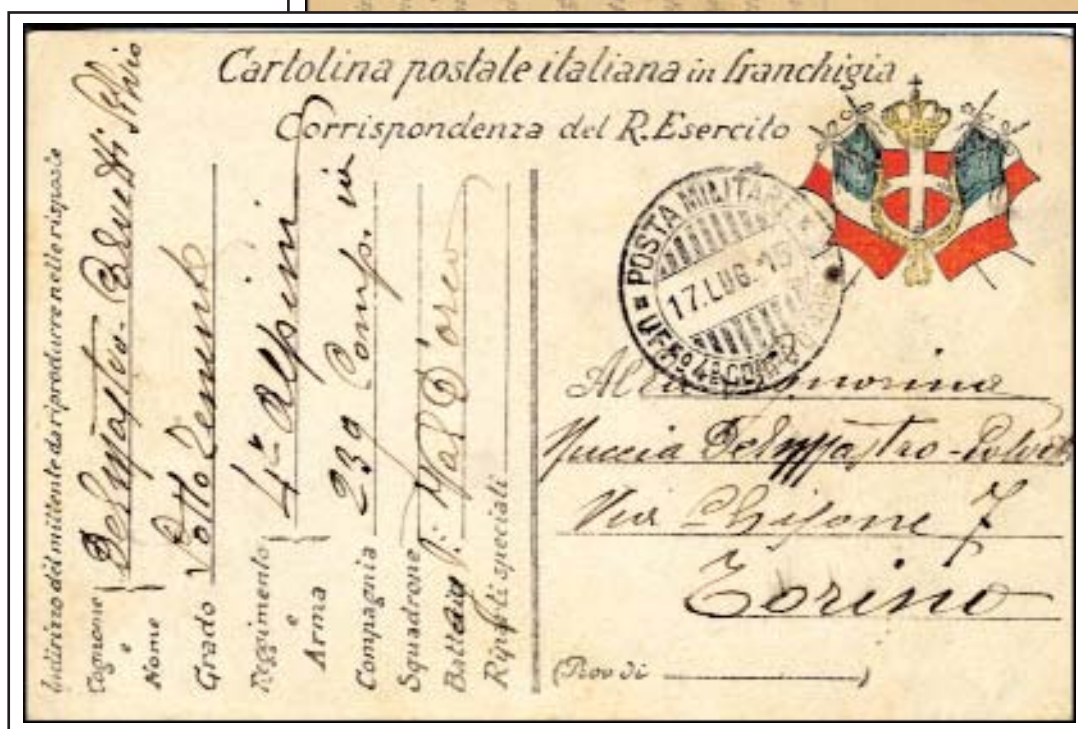 Cartolina postale italiana in franchigia
Corrispondenza del R. Esercito
Indirizzo del mittente da riprodurre nelle risposte
Cognome e Nome Delmastro Silvio
Grado Sotto Tenente
Reggimento e Arma 4º Alpini
Compagnia 239 Comp.
Squadrone
Battaig Val D'Orco
Riparti speciali
POSTA MILITARE
17.LUG. 15
Signorina
Nuccia Delmastro -
Via Chisone 7
Torino
(Prov di )